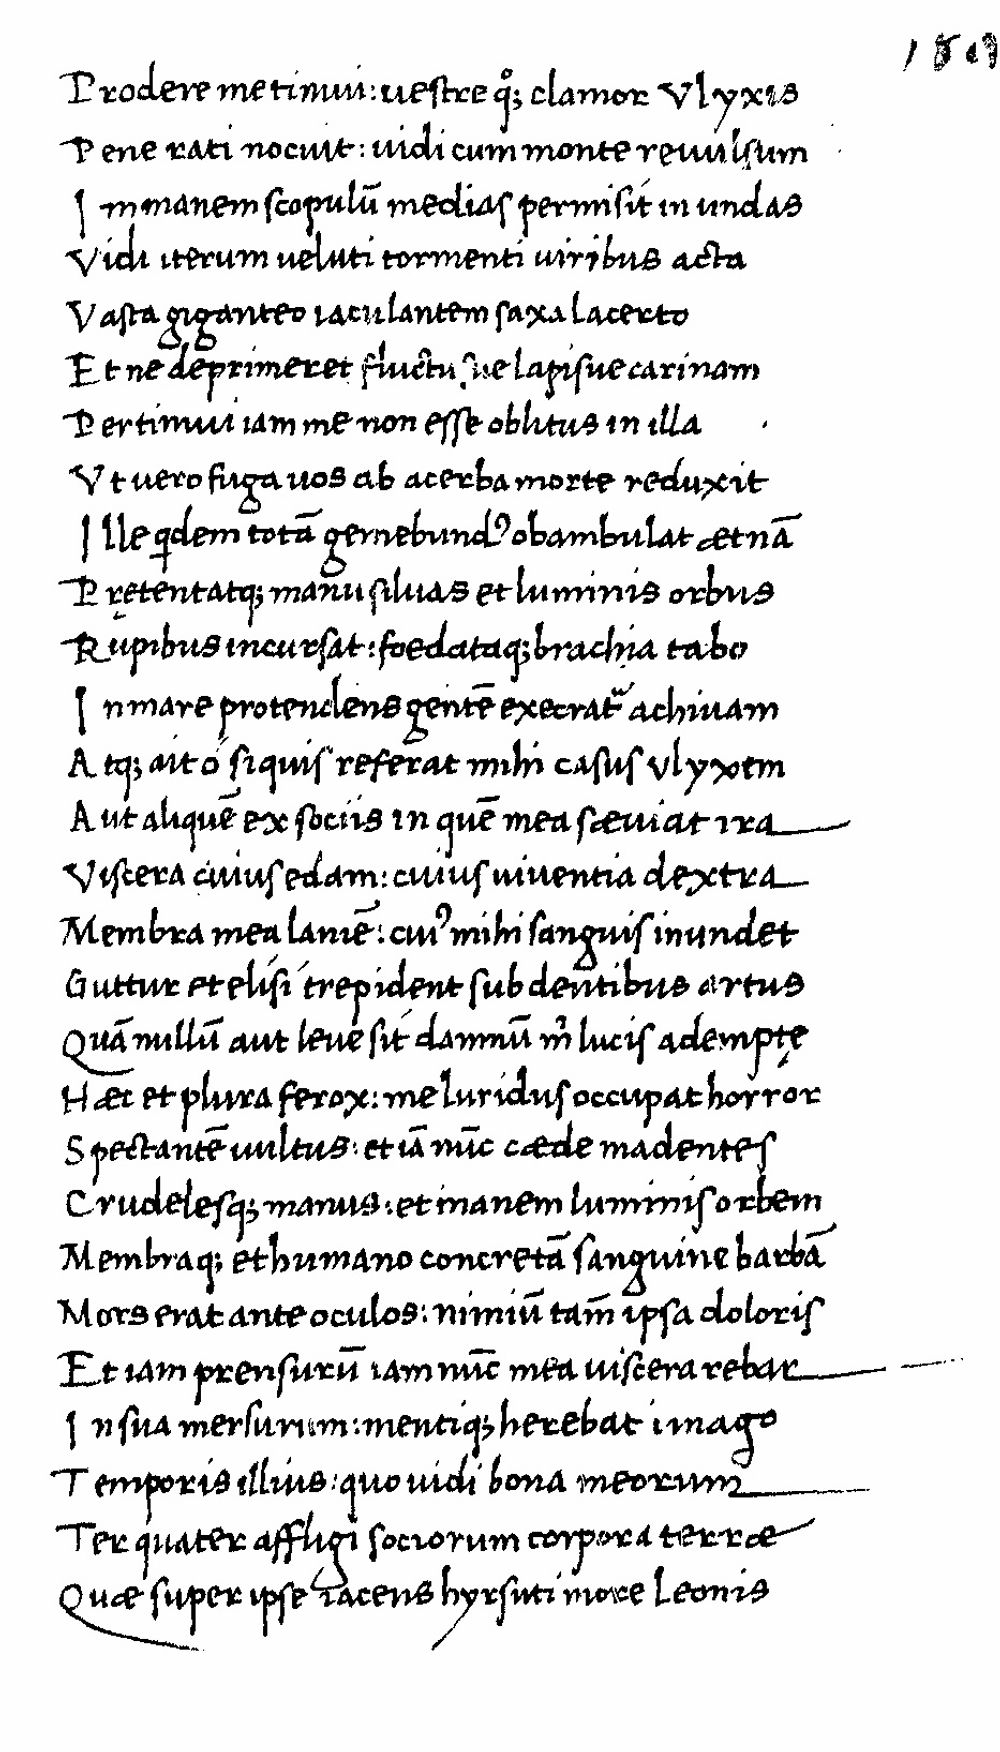 Prodere me timui: uestre qͦꝫ clamor Vlyxis
Pene rati nocuit: uidi cum monte reuulsum
Immanem scopulū medias permisit in undas
Vidi iterum ueluti tormenti uiribus acta
Vasta giganteo iaculantem saxa lacerto
Et ne deprimeret fluctusue lapisue carinam
Pertimui iam me non esse oblitus in illa
Vt uero fuga uos ab acerba morte reduxit
Ille qdem totā gemebundꝰ obambulat ætnā
Prętentatqꝫ manu siluas et luminis orbus
Rupibus incursat: foedataqꝫ brachia tabo
In mare protendens gentē execrat᷑ achiuam
Atqꝫ ait ó si quis referat mihi casus vlyxem
Aut aliquē ex sociis in quē mea sæuiat ira
Viscera cuius edam: cuius uiuentia dextra
Membra mea laniē: cuiꝰ mihi sanguis inundet
Guttur et elisi trepident sub dentibus artus
Quā nullū aut leue sit damnū m̊ lucis ademptę
Hæc et plura ferox: me luridus occupat horror
Spectantē uultus: et iā nūc cæde madentes
Crudelesqꝫ manus: et inanem luminis orbem
Membraqꝫ et humano concretā sanguine barbā
Mors erat ante oculos: nimiū tam̄ ipsa doloris
Et iam prensurū iam nūc mea uiscera rebar
In sua mersurum: mentiqꝫ herebat imago
Temporis illius: quo uidi bona meorum
Ter quater affligi sociorum corpora terræ
Quæ super ipse iacens hyrsuti more Leonis